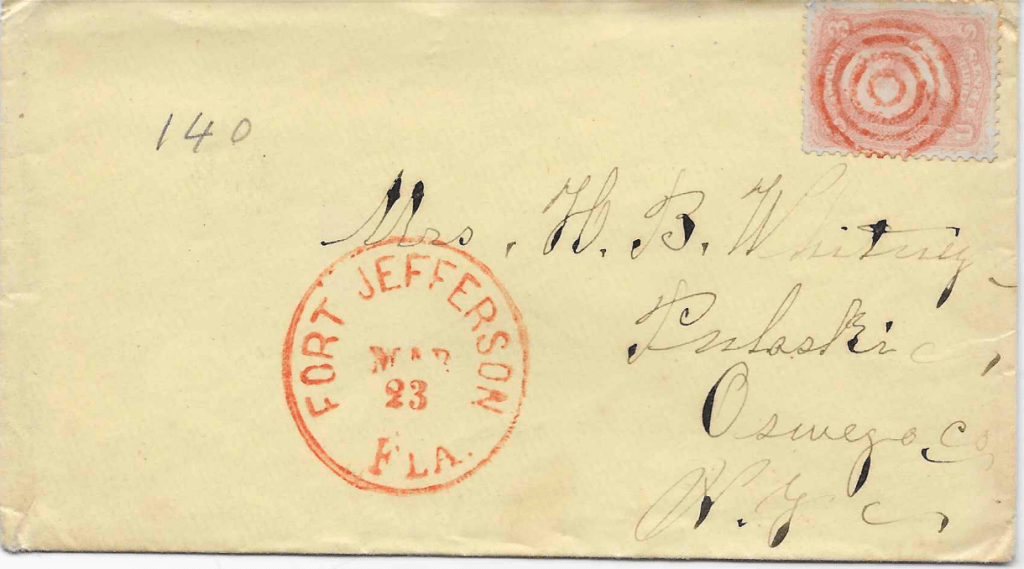 3 U S
140
Mrs. H. B. Whitney
Pulaski
Oswego Co
N. Y
FORT JEFFERSON
MAR
23
FLA.